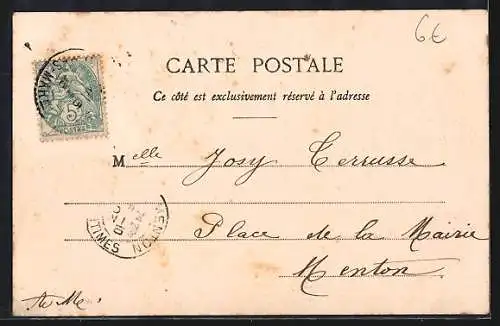 6€
CARTE POSTALE
Ce côté est exclusivement réservé à l'adresse
Melle Josy Terrusse
Place de la Mairie
Menton
MENTON